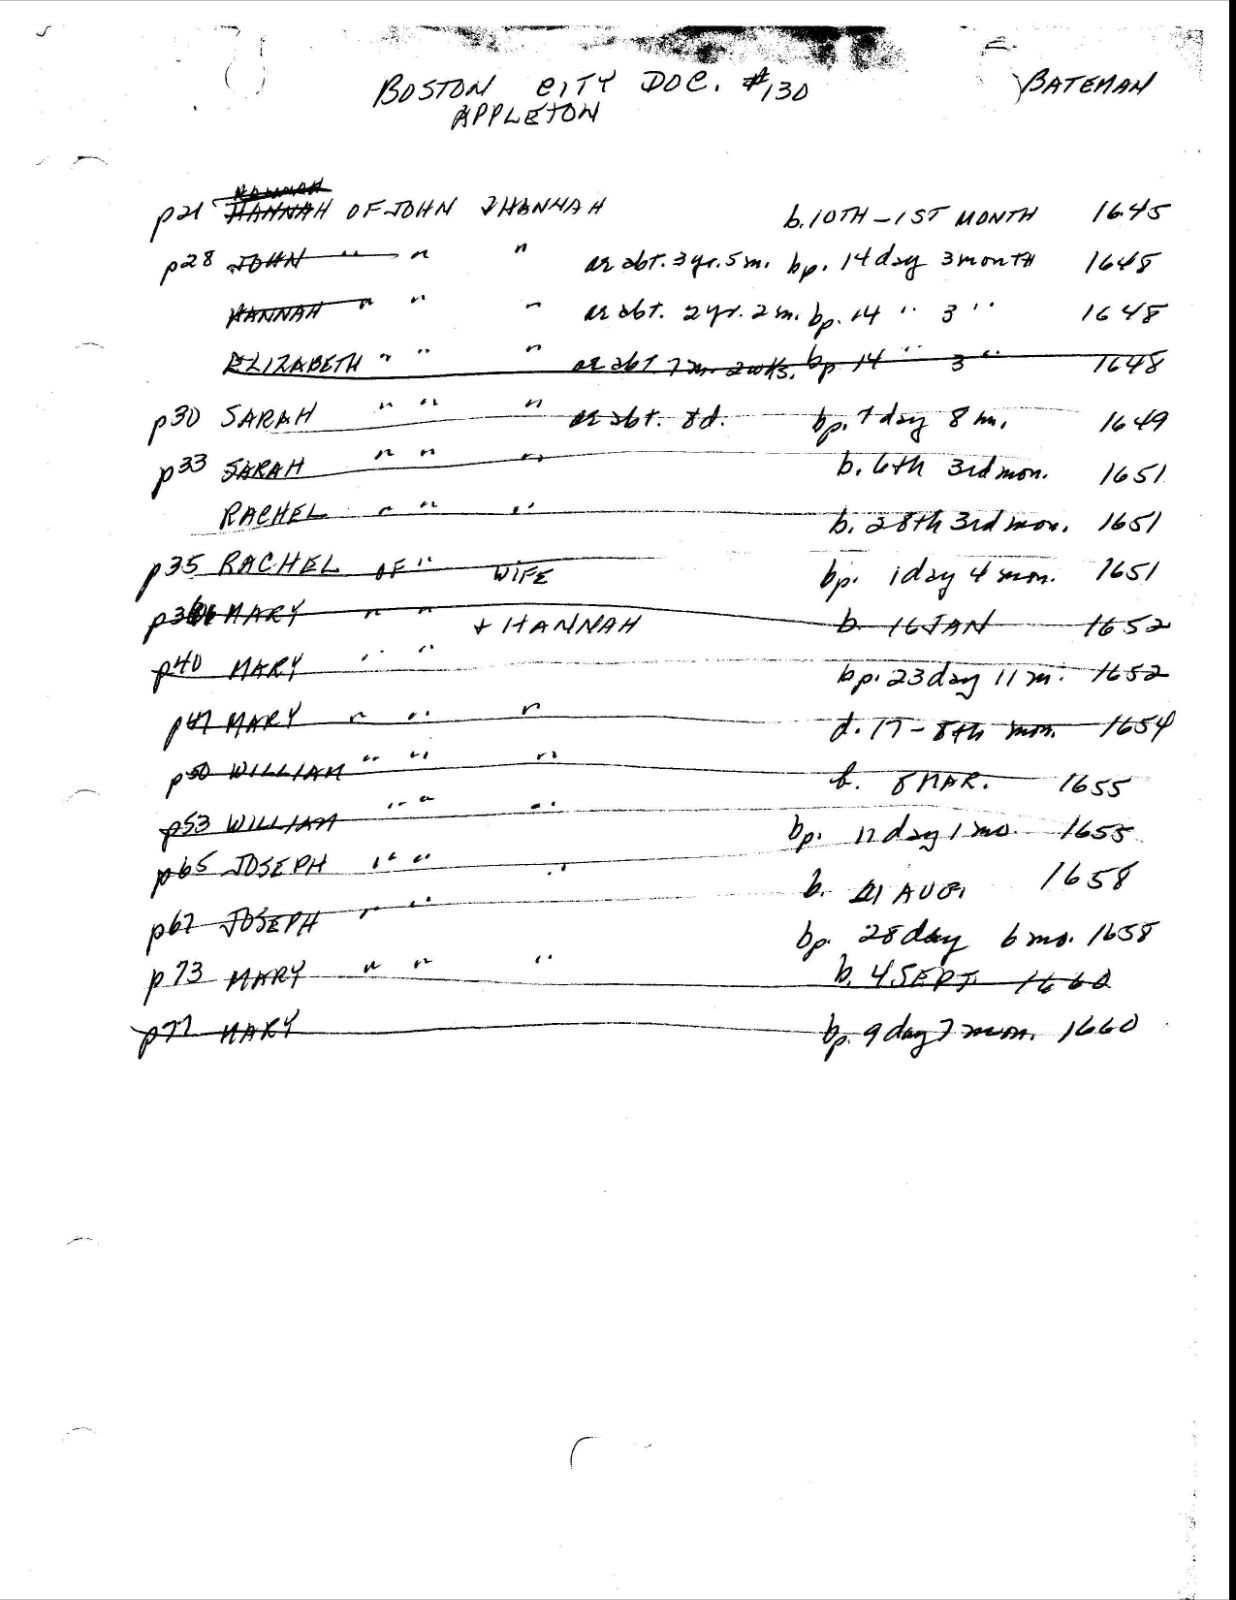 BOSTON CITY DOC. #130 BATEMAN
APPLETON
HANNAH
p21 HANNAH OF JOHN & HANNAH b. 10TH - 1ST MONTH 1645
p28 JOHN " " " ar abt. 3 yr. 5 m. bp. 14 day 3 month 1648
HANNAH " " " ar abt. 2 yr. 2 m. bp. 14 " 3 " 1648
ELIZABETH " " " ar abt 7 m. 2 wks. bp 14 " 3 " 1648
p30 SARAH " " " ar abt. 8 d. bp. 7 day 8 m. 1649
p33 SARAH " " " b. 6th 3rd mon. 1651
RACHEL " " " b. 28th 3rd mon. 1651
p35 RACHEL OF " WIFE bp. 1 day 4 mon. 1651
MARY " " + HANNAH b. 16 JAN 1652
p40 MARY " " bp. 23 day 11 m. 1652
p47 MARY " " " d. 17 - 8th mon. 1654
p50 WILLIAM " " " b. 8 MAR. 1655
p53 WILLIAM " " " bp. 11 day 1 mo. 1655
p65 JOSEPH " " " b. 21 AUG. 1658
p67 JOSEPH " " bp. 28 day 6 mo. 1658
p73 MARY " " " b. 4 SEPT 1660
p77 MARY bp. 9 day 7 mon. 1660